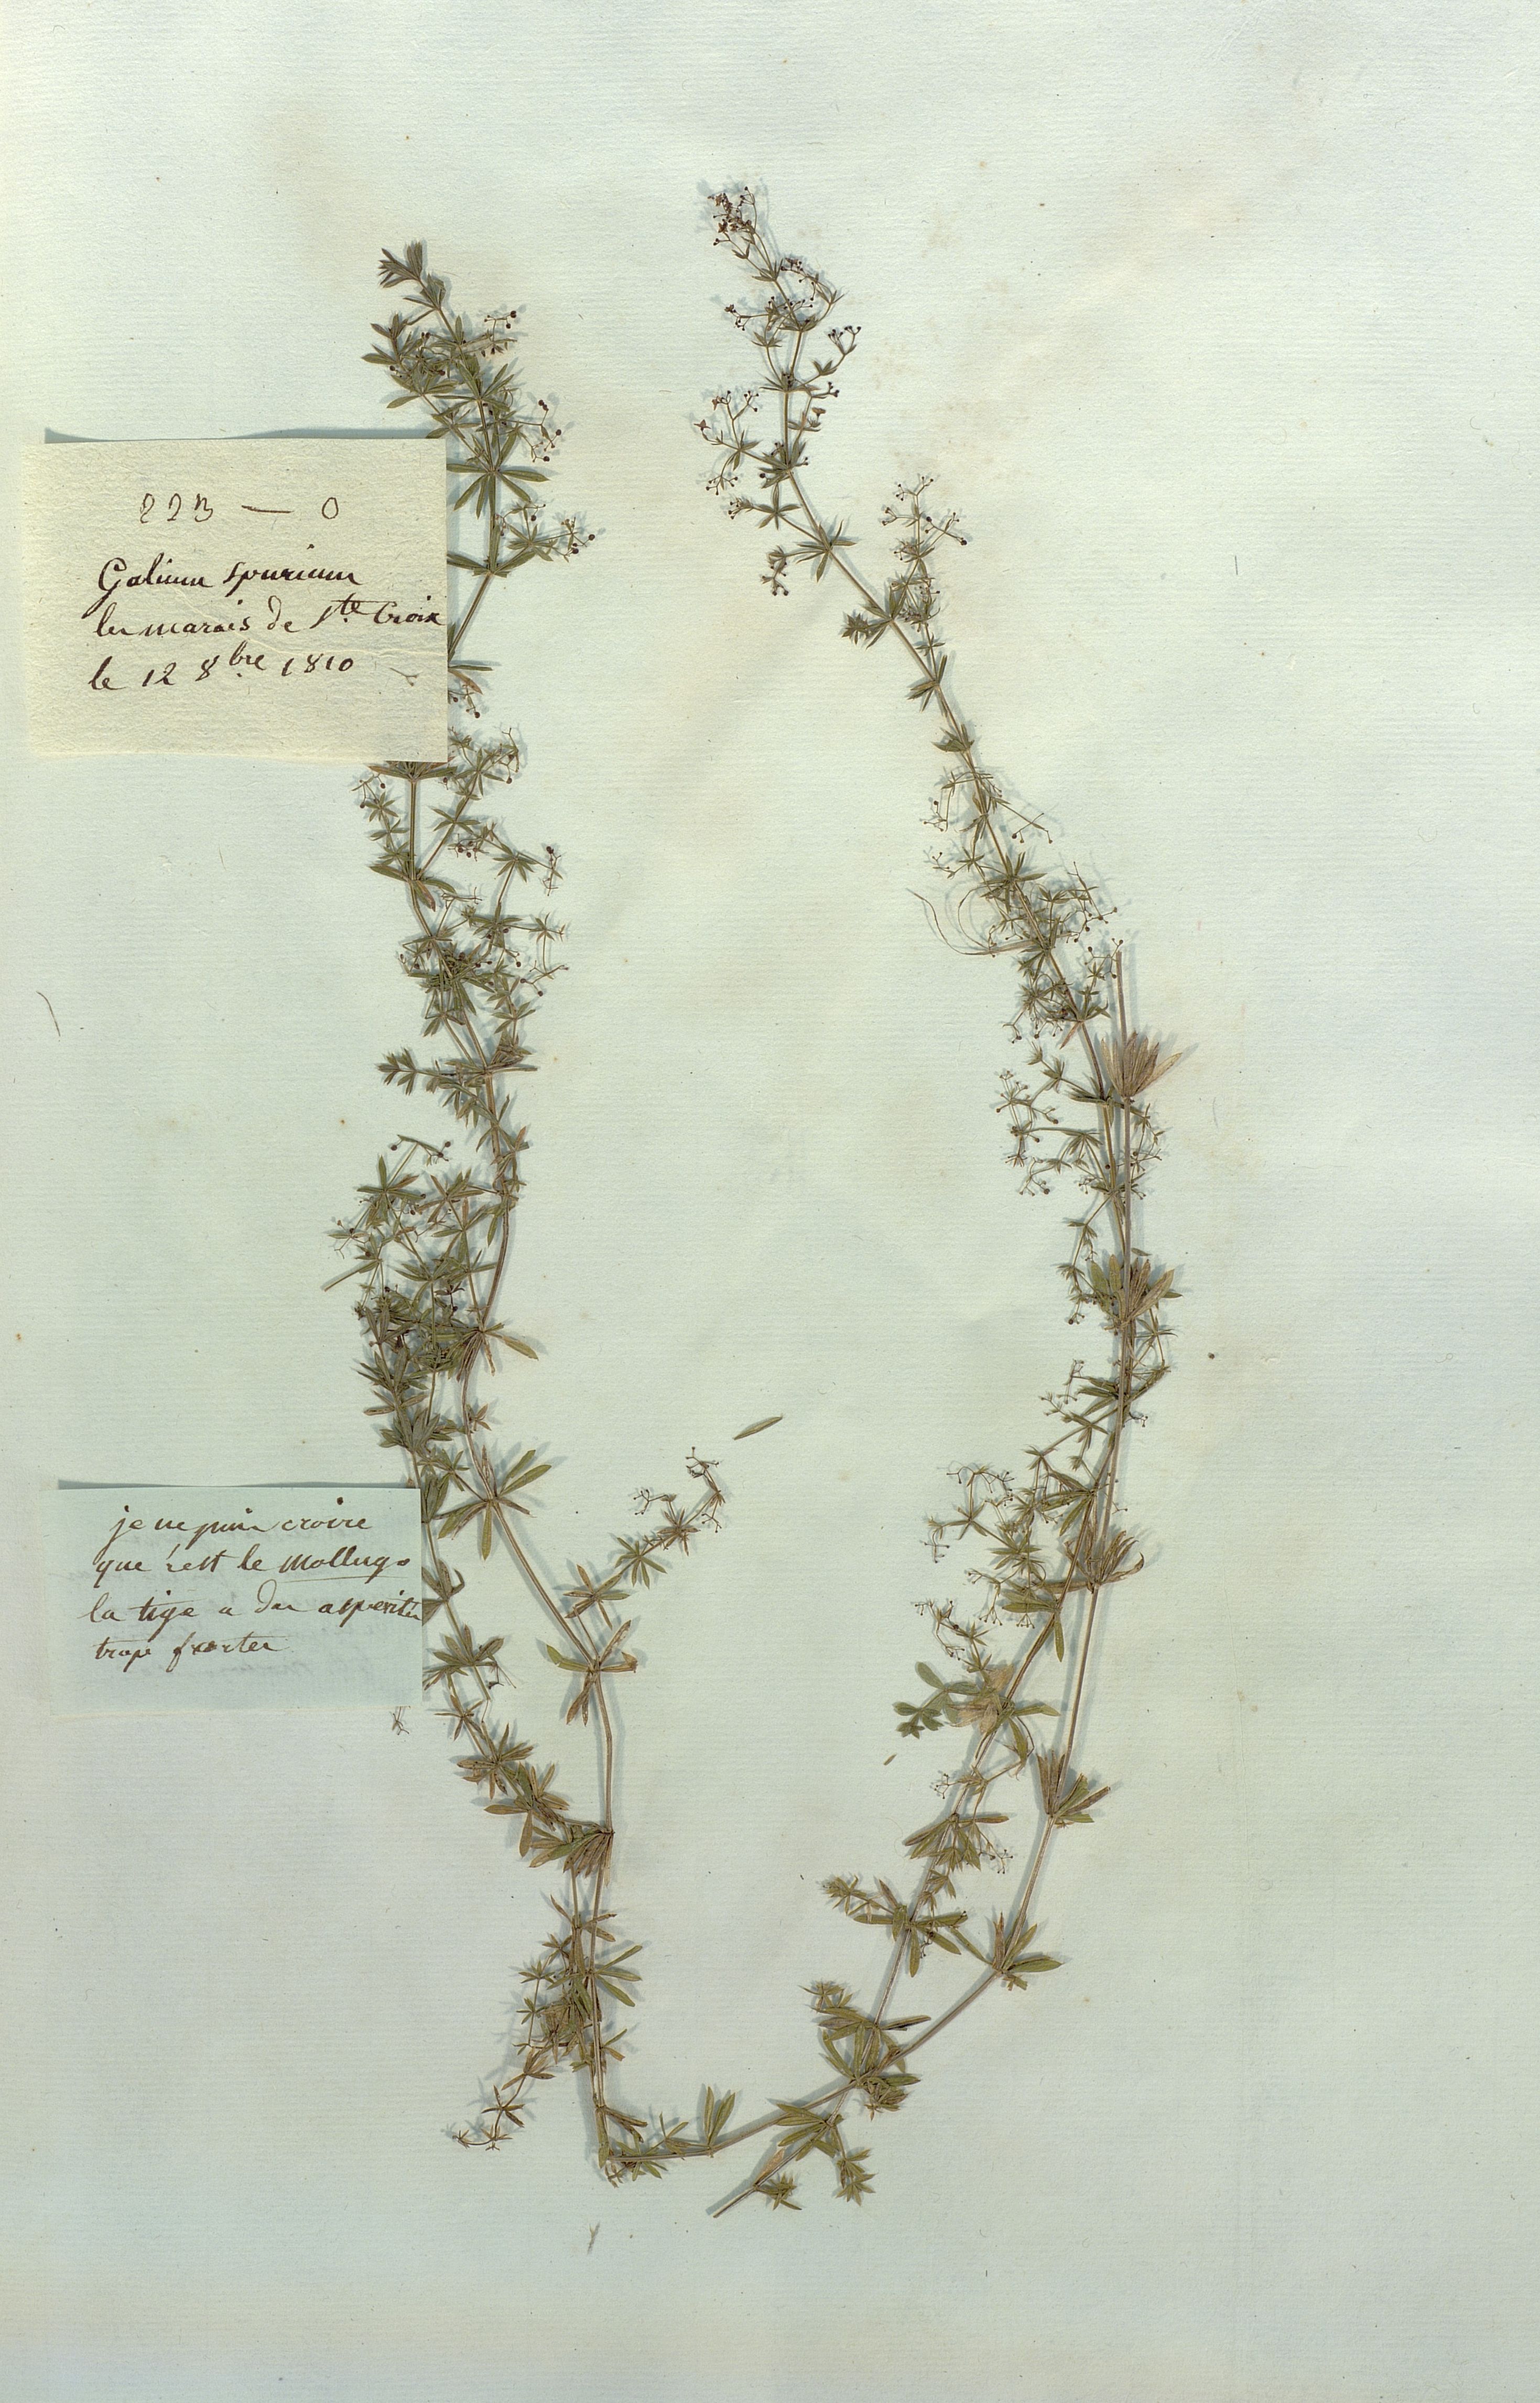 223 — 0
Galium spurium
les marais de Ste Croix
le 12 8bre 1810
je ne puis croire
que c'est le Mollugo
la tige a des asperités
trop fortes